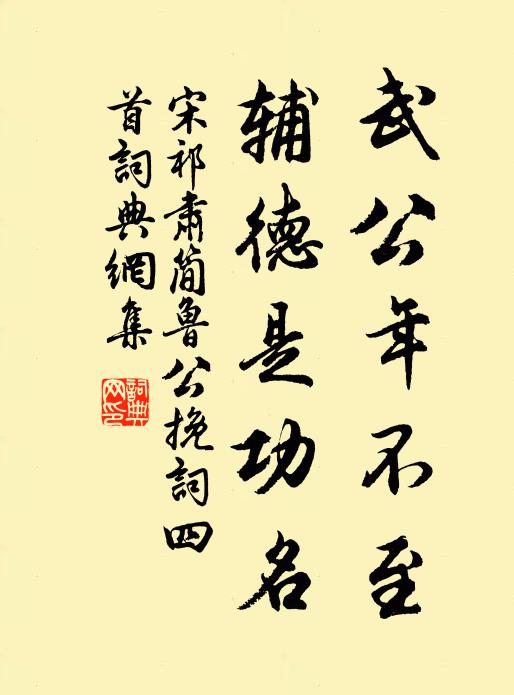 武公年不至
辅德是功名
宋祁肃简鲁公挽詞四
首詞典網集
詞典
网印